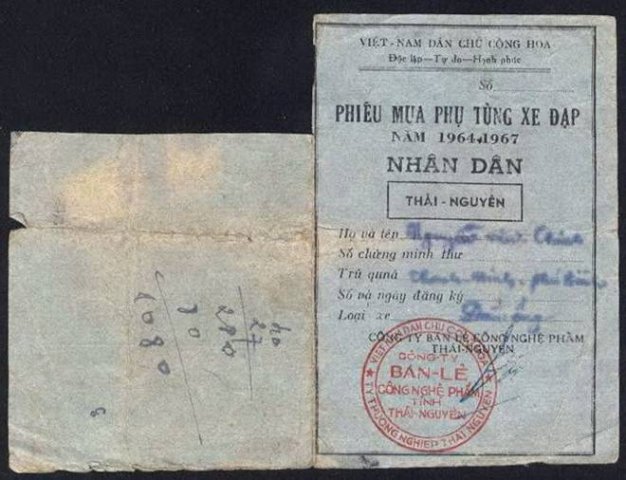 VIỆT-NAM DÂN CHỦ CỘNG HÒA
Độc lập—Tự do—Hạnh phúc
Số
PHIẾU MUA PHỤ TÙNG XE ĐẠP
NĂM 1964-1967
NHÂN DÂN
THÁI-NGUYÊN
Họ và tên Nguyễn
Số chứng minh thư
Trú quán
Số và ngày đăng ký
Loại xe
CÔNG TY BÁN LẺ CÔNG NGHỆ PHẨM
THÁI-NGUYÊN
VIỆT NAM DÂN CHỦ CỘNG HÒA
CÔNG TY
BÁN-LẺ
CÔNG NGHỆ PHẨM
TỈNH
THÁI-NGUYÊN
TY THƯƠNG NGHIỆP THÁI NGUYÊN
40
27
280
1080